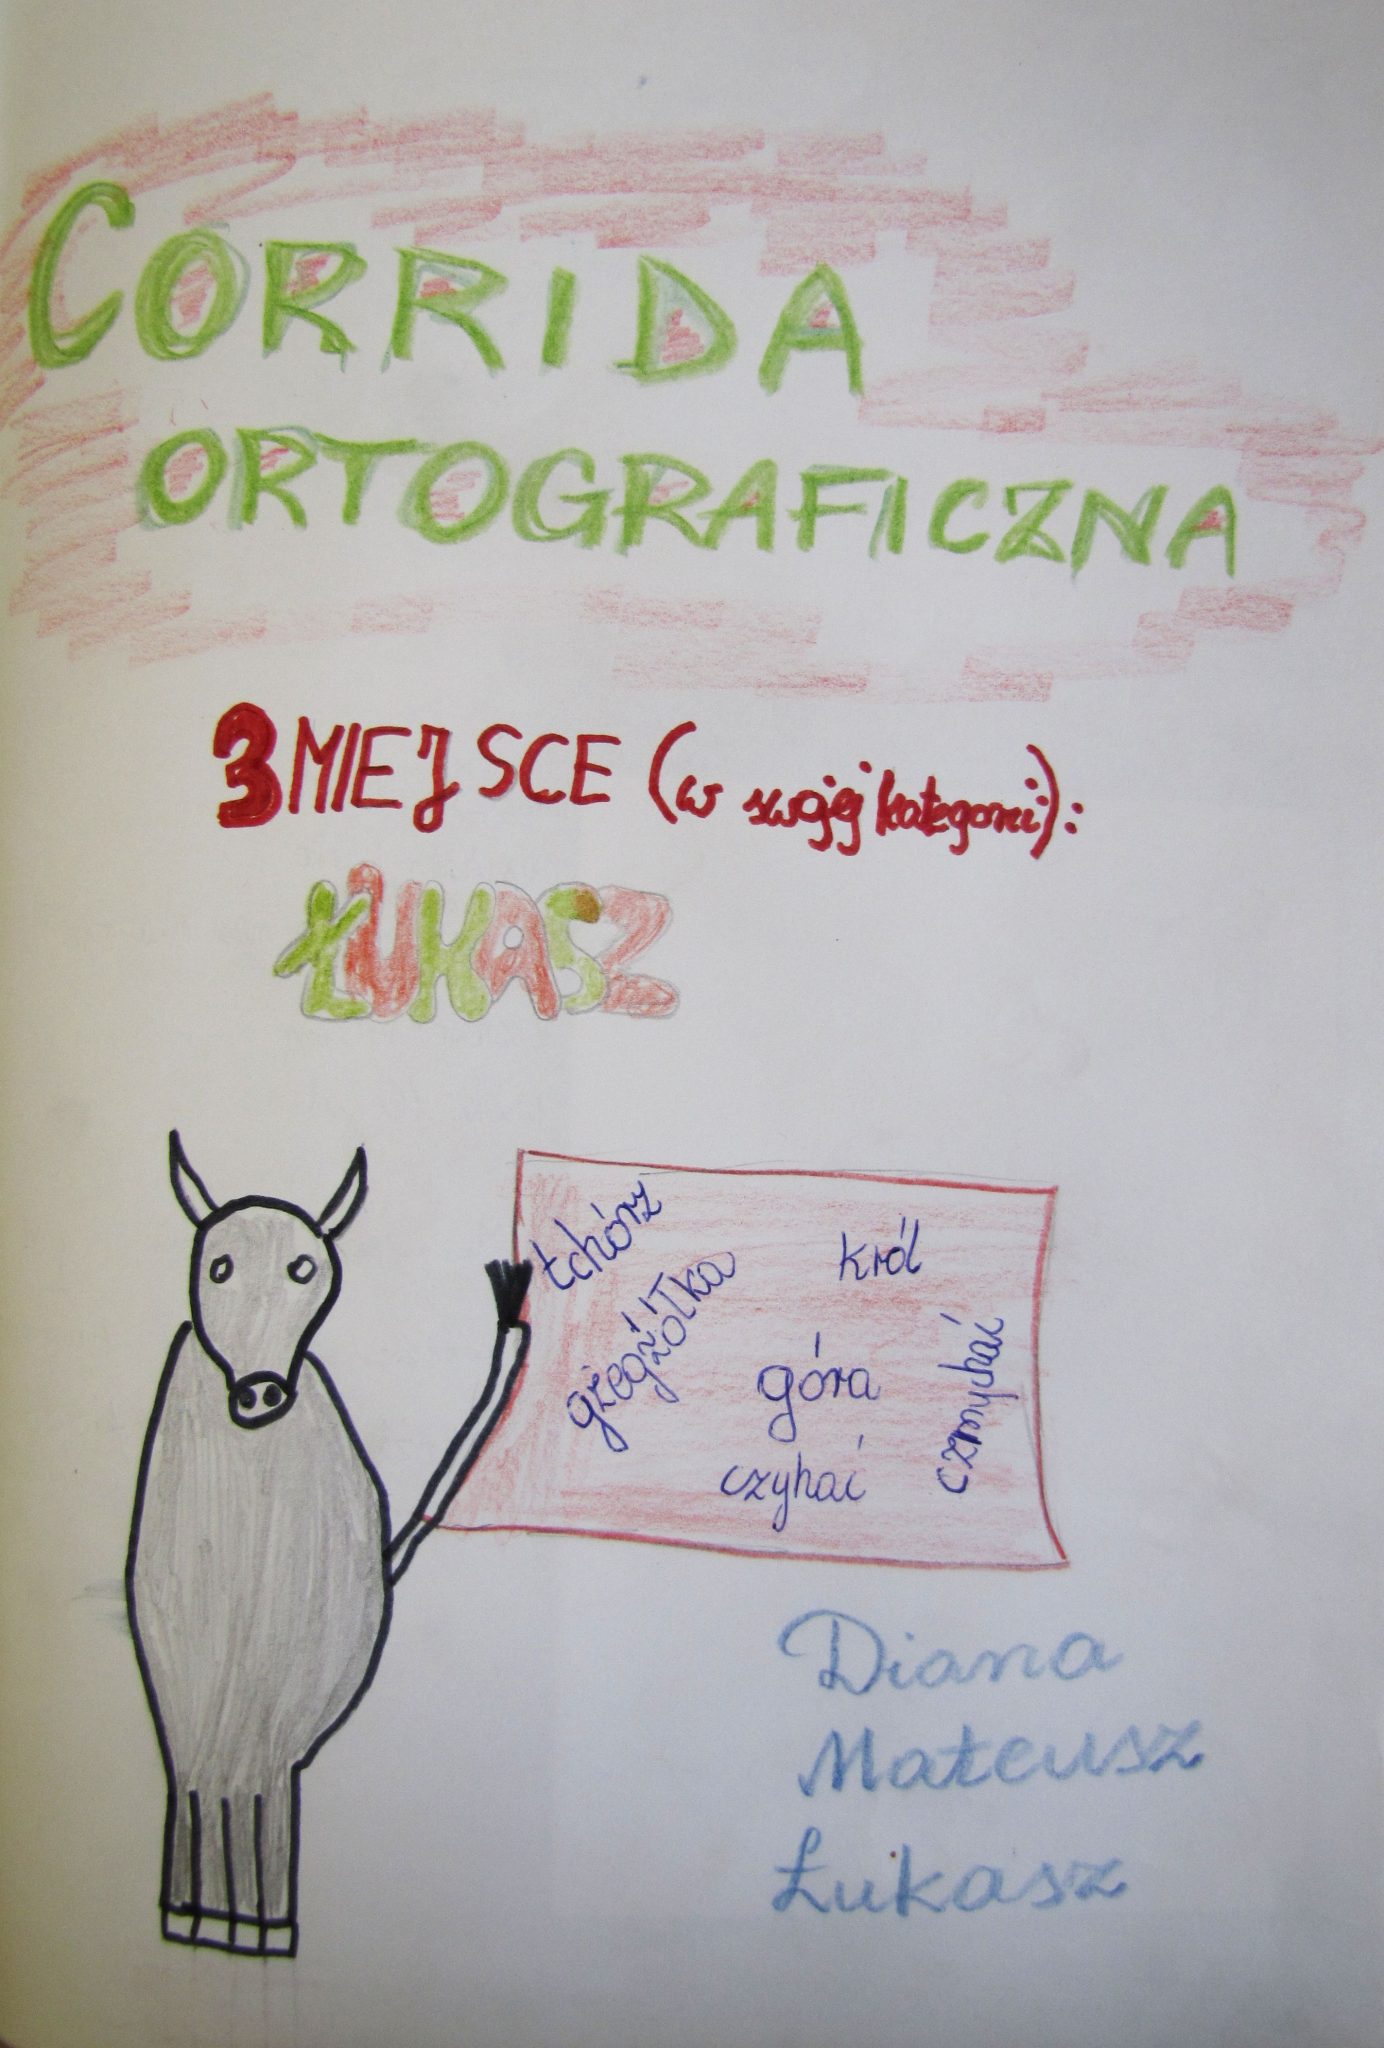 CORRIDA
ORTOGRAFICZNA
3 MIEJSCE (w swojej kategorii):
ŁUKASZ
tchórz
gżegżółka
król
góra
czyhać
czmychać
Diana
Mateusz
Łukasz